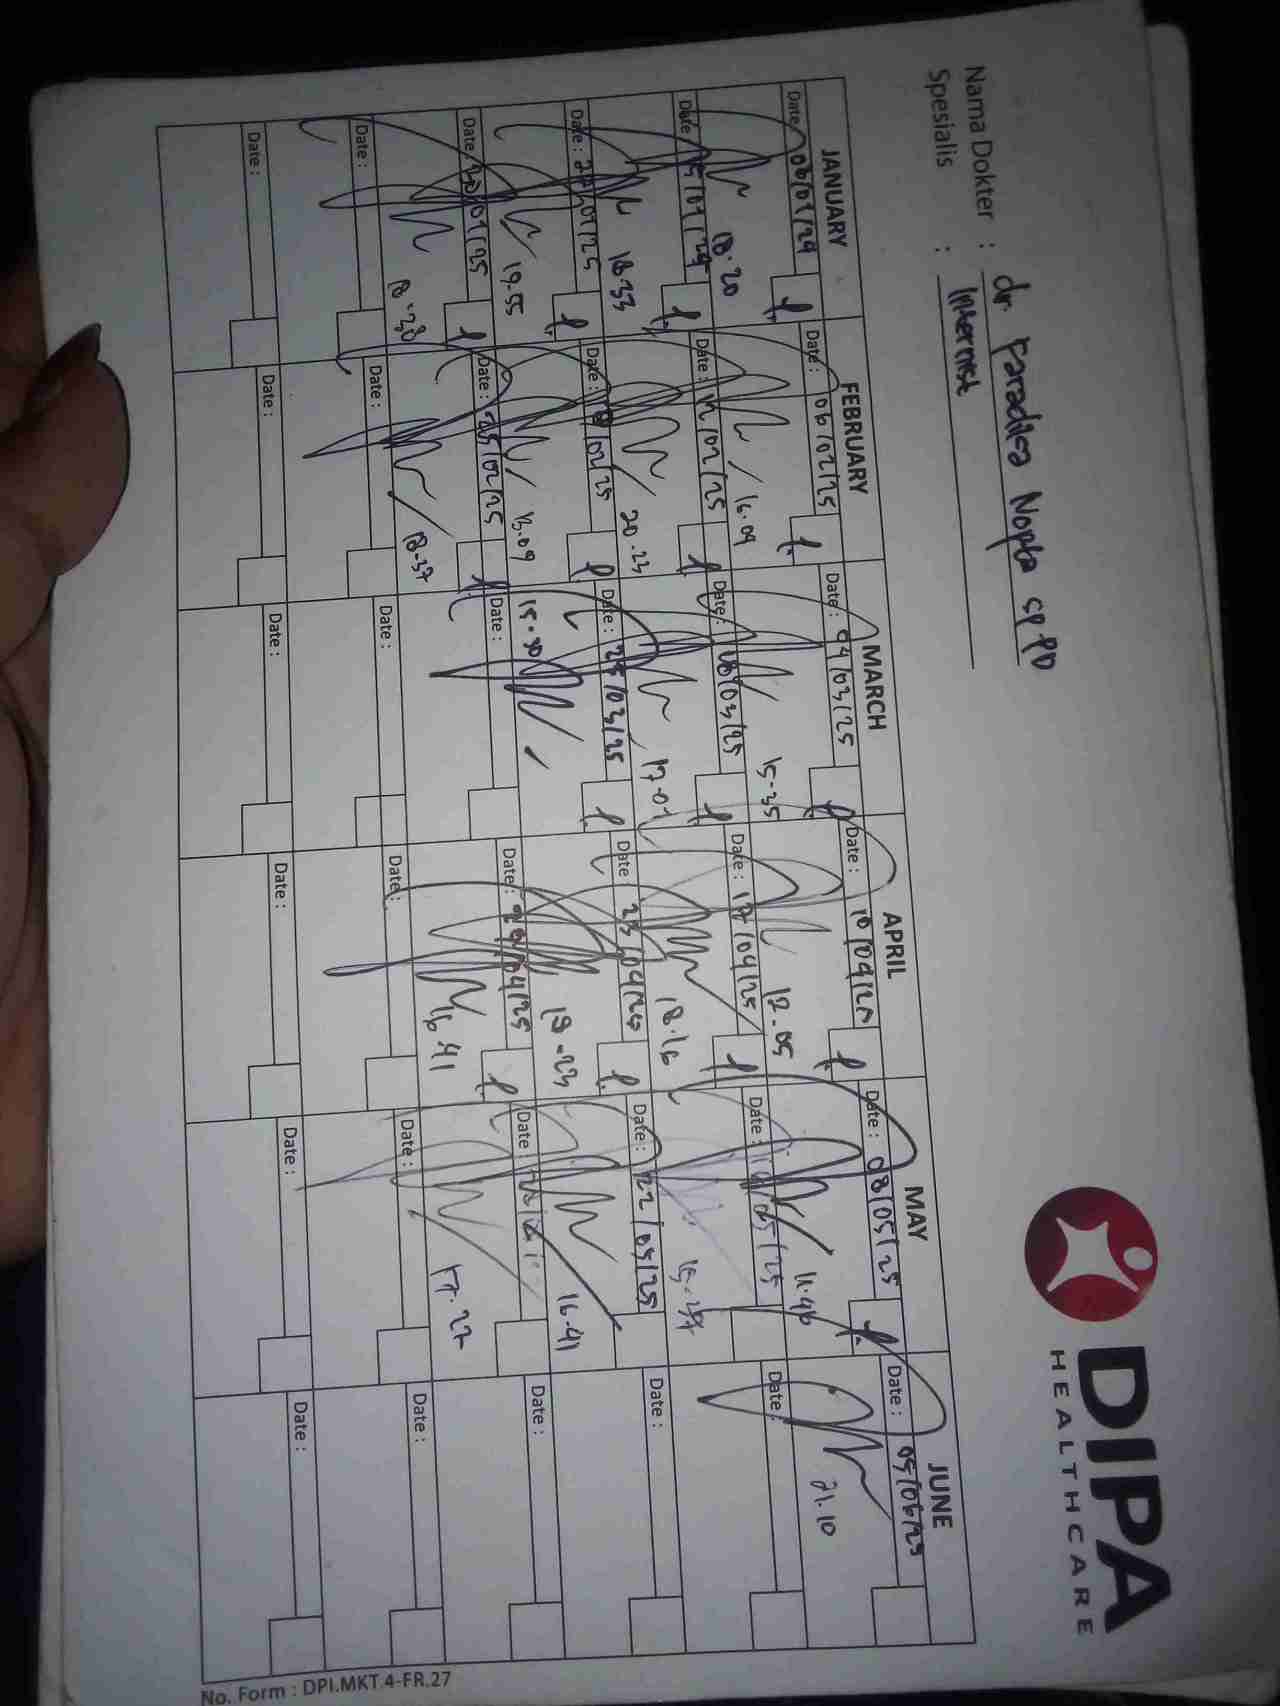 DIPA
HEALTHCARE
Nama Dokter : dr. Paradisa Nopta SpPD
Spesialis : Internist
JANUARY FEBRUARY MARCH APRIL MAY JUNE
Date : 06/01/24 Date : 06/02/25 Date : 04/03/25 Date : 10/04/25 Date : 08/05/25 Date : 05/06/25
18.20 16.09 15-35 12.05 11.46 21.10
Date : 15/01/24 Date : 12/02/25 Date : /03/25 Date : 17/04/25 Date : /05/25 Date :
18.33 20.23 17.01 18.16
Date : /01/25 Date : /02/25 Date : 25/03/25 Date 23/04/25 Date : 22/05/25 Date :
19.55 13.09 15.30 19-23 16.41
Date : 30/01/25 Date : 25/02/25 Date : Date : 29/04/25 Date : Date :
18-38 18-37 16.41 17.27
Date : Date : Date : Date : Date : Date :
Date : Date : Date : Date : Date : Date :
No. Form : DPI.MKT.4-FR.27